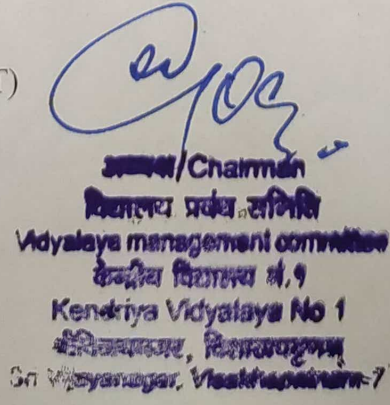 अध्यक्ष/Chairman
विद्यालय प्रबंध समिति
Vidyalaya management committee
केन्द्रीय विद्यालय नं.१
Kendriya Vidyalaya No 1
श्रीविजयनगर, विशाखापट्टणम्
Sri Vijayanagar, Visakhapatnam-7